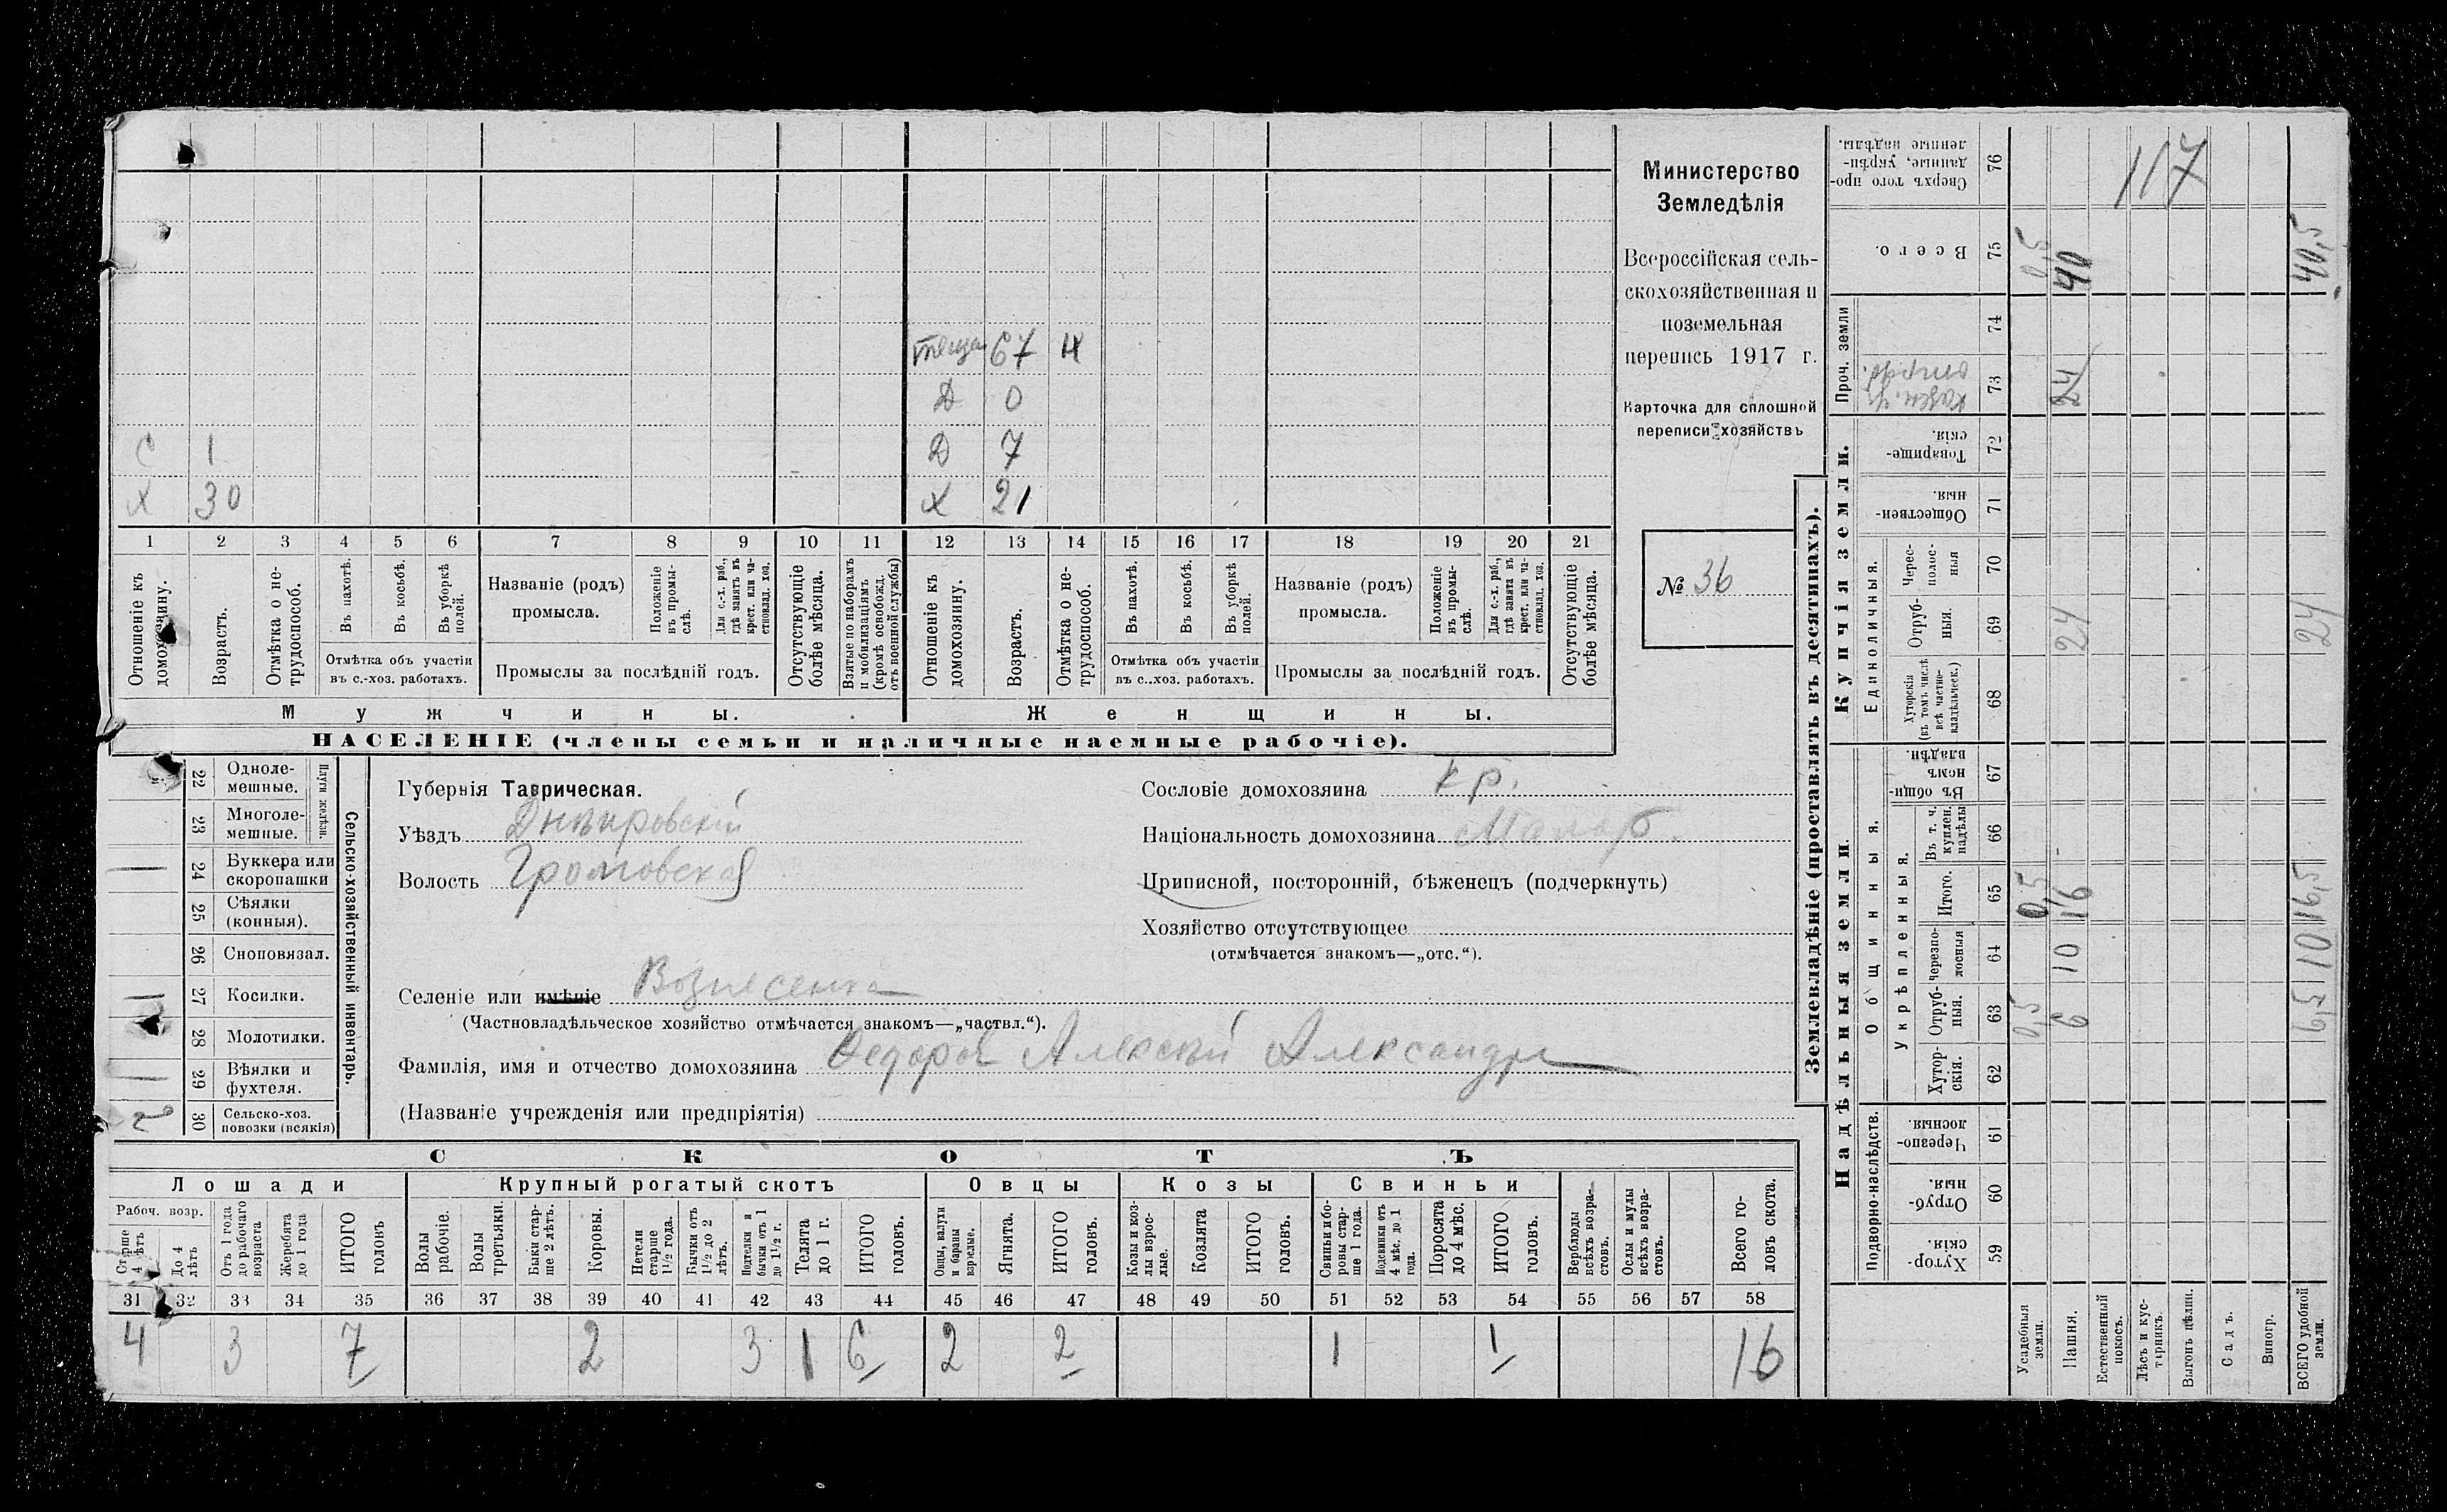 теща 67 Н
Д 0
С 1 Д 7
Х 30 Х 21
1 2 3 4 5 6 7 8 9 10 11 12 13 14 15 16 17 18 19 20 21
Отношеніе къ домохозяину.
Возрастъ.
Отмѣтка о нетрудоспособ.
Въ пахотѣ.
Въ косьбѣ.
Въ уборкѣ полей.
Отмѣтка объ участіи въ с.-хоз. работахъ.
Названіе (родъ) промысла.
Положеніе въ промыслѣ.
Для с.-х. раб., гдѣ занятъ въ крест. или частновлад. хоз.
Промыслы за послѣдній годъ.
Отсутствующіе болѣе мѣсяца.
Взятые по наборамъ и мобилизаціямъ (кромѣ освобожд. отъ военной службы)
Отношеніе къ домохозяину.
Возрастъ.
Отмѣтка о нетрудоспособ.
Въ пахотѣ.
Въ косьбѣ.
Въ уборкѣ полей.
Отмѣтка объ участіи въ с.-хоз. работахъ.
Названіе (родъ) промысла.
Положеніе въ промыслѣ.
Для с.-х. раб., гдѣ занята въ крест. или частновлад. хоз.
Промыслы за послѣдній годъ.
Отсутствующіе болѣе мѣсяца.
Мужчины. Женщины.
НАСЕЛЕНІЕ (члены семьи и наличные наемные рабочіе).
Министерство
Земледѣлія
Всероссійская сель-
скохозяйственная и
поземельная
перепись 1917 г.
Карточка для сплошной
переписи хозяйствъ
№ 36
Сельско-хозяйственный инвентарь.
Плуги желѣзн.
22 Однолемешные.
23 Многолемешные.
24 Буккера или скоропашки 1
25 Сѣялки (конныя).
26 Сноповязал.
27 Косилки. 1
28 Молотилки.
29 Вѣялки и фухтеля. 1
30 Сельско-хоз. повозки (всякія) 2
Губернія Таврическая.
Уѣздъ Днѣпровскій
Волость Громовская
Сословіе домохозяина кр.
Національность домохозяина Малор.
Приписной, посторонній, бѣженецъ (подчеркнуть)
Хозяйство отсутствующее
(отмѣчается знакомъ—„отс.“).
Селеніе или имѣніе Вознесенка
(Частновладѣльческое хозяйство отмѣчается знакомъ—„частвл.“).
Фамилія, имя и отчество домохозяина Федоров Алексѣй Александр
(Названіе учрежденія или предпріятія)
СКОТЪ
Лошади Крупный рогатый скотъ Овцы Козы Свиньи
Рабоч. возр.
Старше 4 лѣтъ
До 4 лѣтъ
Отъ 1 года до рабочаго возраста
Жеребята до 1 года
ИТОГО головъ
Волы рабочіе.
Волы третьяки.
Быки старше 2 лѣтъ.
Коровы.
Нетели старше 1½ года.
Бычки отъ 1½ до 2 лѣтъ.
Подтелки и бычки отъ 1 до 1½ г.
Телята до 1 г.
ИТОГО головъ.
Овцы, валухи и бараны взрослые.
Ягнята.
ИТОГО головъ.
Козы и козлы взрослые.
Козлята
ИТОГО головъ.
Свиньи и боровы старше 1 года.
Подсвинки отъ 4 мѣс. до 1 года.
Поросята до 4 мѣс.
ИТОГО головъ.
Верблюды всѣхъ возрастовъ.
Ослы и мулы всѣхъ возрастовъ.
Всего головъ скота.
31 32 33 34 35 36 37 38 39 40 41 42 43 44 45 46 47 48 49 50 51 52 53 54 55 56 57 58
4 3 7 2 3 1 6 2 2 1 1 16
Землевладѣніе (проставлять въ десятинахъ).
Надѣльныя земли. Купчія земли. Проч. земли
Подворно-наслѣдств.
Общинныя.
Укрѣпленныя.
Единоличныя.
59 Хуторскія.
60 Отрубныя.
61 Черезполосныя.
62 Хуторскія.
63 Отрубныя. 0,5 6 6,5
64 Черезполосныя 10 10
65 Итого. 0,5 16 16,5
66 Въ т. ч. куплен. надѣлы
67 Въ общиномъ владѣн.
68 Хуторскія (въ томъ числѣ всѣ частновладѣльческ.)
69 Отрубныя. 24 24
70 Чересполосныя
71 Общественныя.
72 Товарищескія.
73 24
74
75 Всего. 0,5 40 40,5
76 Сверхъ того проданные, укрѣпленные надѣлы.
117
Усадебныя земли.
Пашня.
Естественный покосъ.
Лѣсъ и кустарникъ.
Выгонъ цѣлин.
Садъ.
Виногр.
ВСЕГО удобной земли.